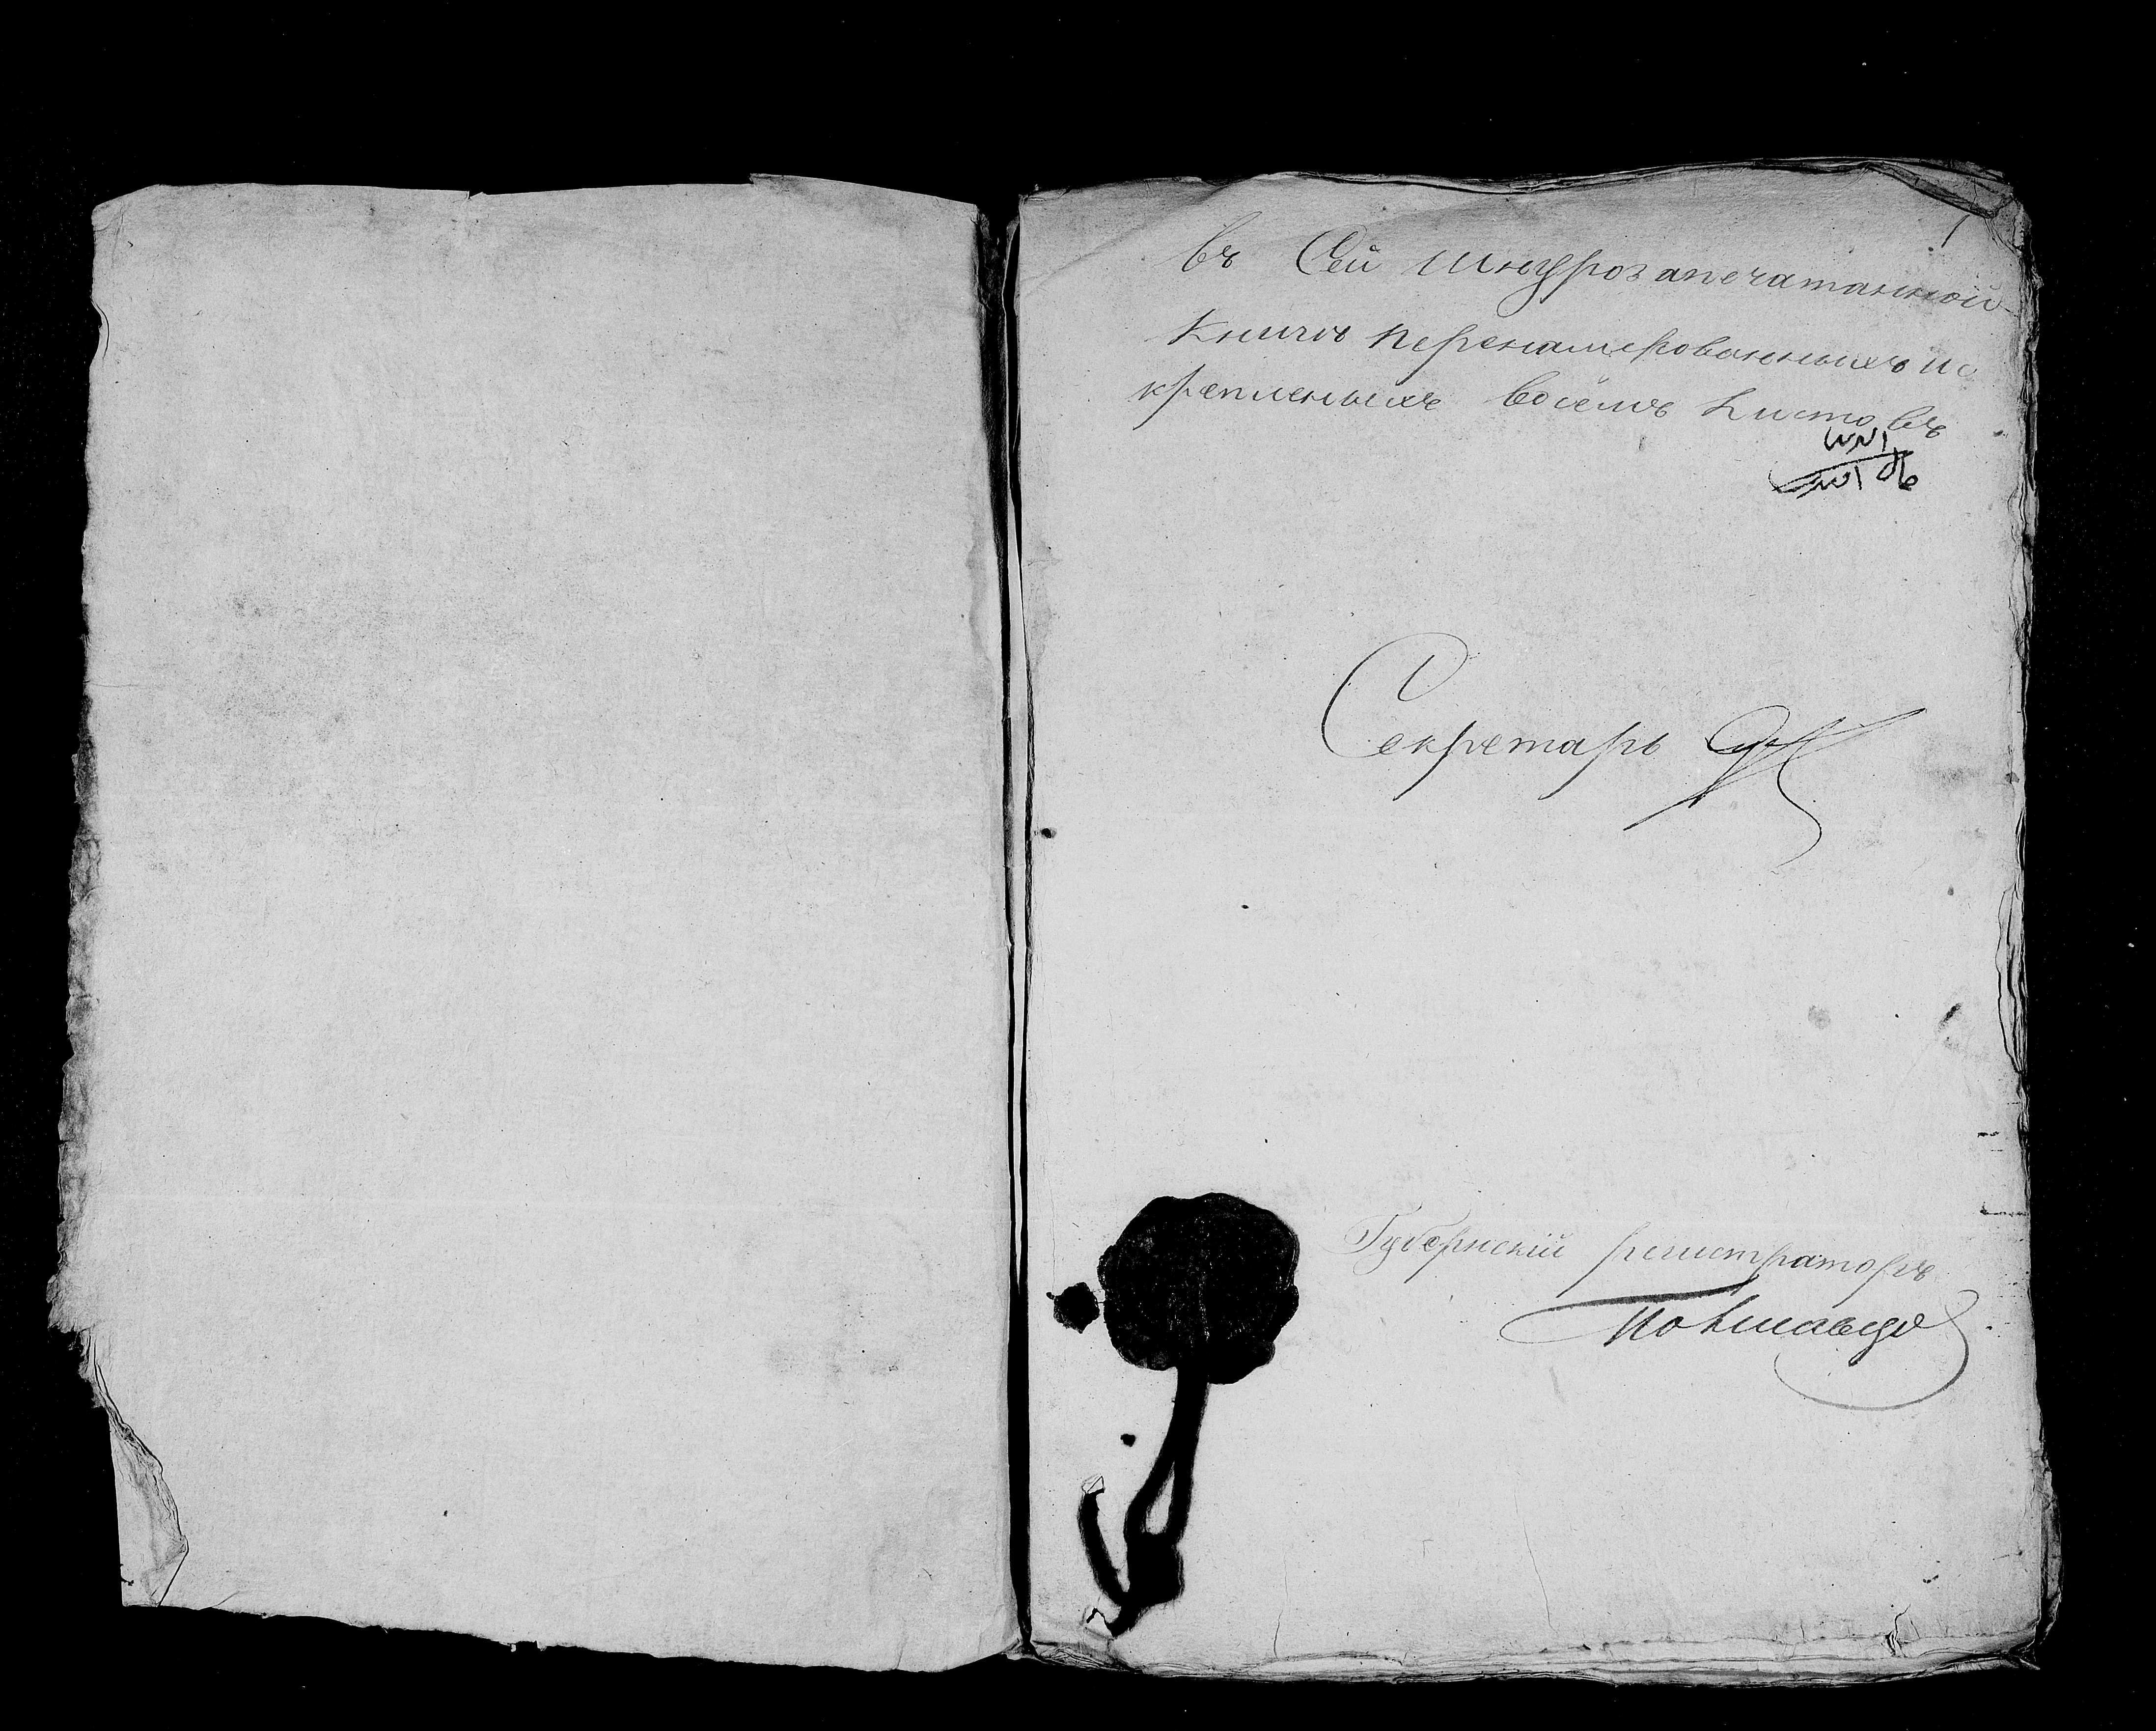 въ Сей шнурозапечатанной
Книгѣ перенамерованныхъ и с
крепленыхъ восемь Листовъ
Секретарь
Губернскій регистраторъ